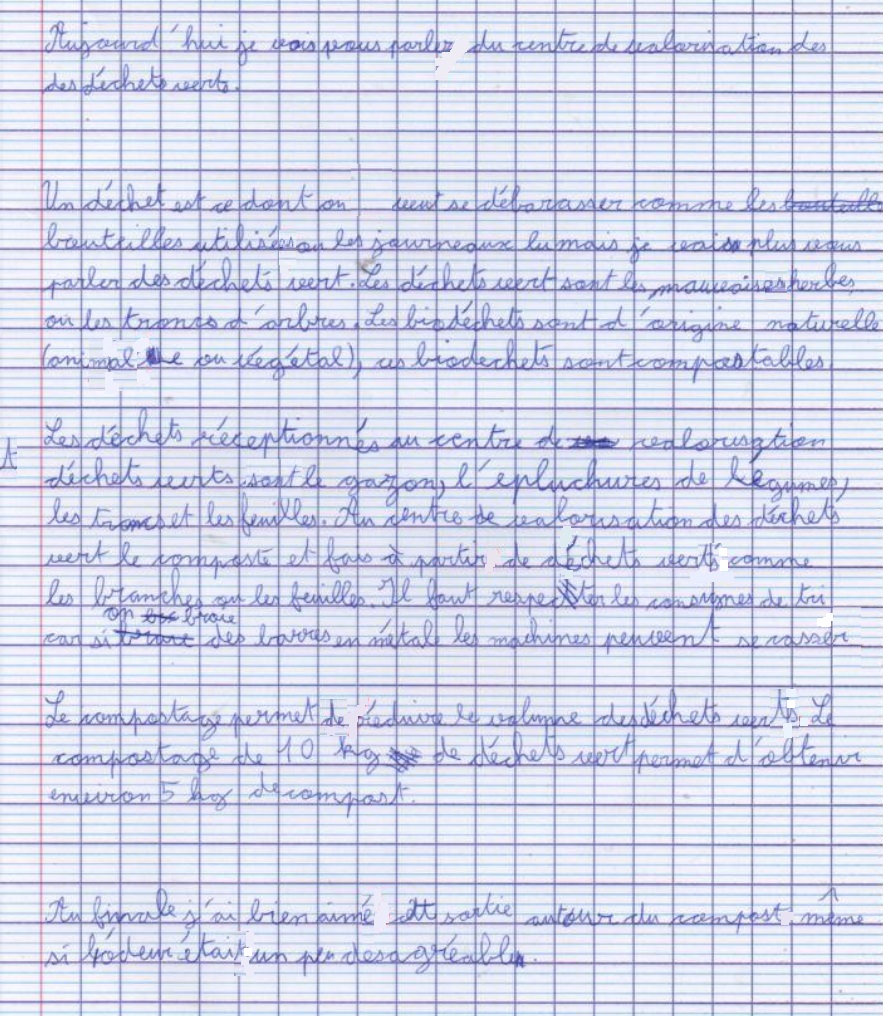 Aujourd'hui je vais vous parler du centre de valorisation des
des déchets verts.
Un déchet est ce dont on veut se débarasser comme les
bouteilles utilisées ou les journeaux lu mais je vais plus vous
parler des déchets vert. Les déchets vert sont les mauvaises herbes
ou les troncs d'arbres. Les biodéchets sont d'origine naturelle
(animale ou végétal), ces biodechets sont compostables.
Les déchets réceptionnés au centre de valorisation
déchets verts sont le gazon, l'épluchures de légumes,
les troncs et les feuilles. Au centre de valorisation des déchets
vert le composte et fais à partir de déchets verts comme
les branches ou les feuilles. Il faut respecter les consignes de tri
on broie
car si des barres en métale les machines peuvent se casser
Le compostage permet de réduire le volume des déchets verts. Le
compostage de 10 kg de déchets vert permet d'obtenir
environ 5 kg de compost.
Au finale j'ai bien aimé sortie autour du compost même
si l'odeur était un peu desagréable.